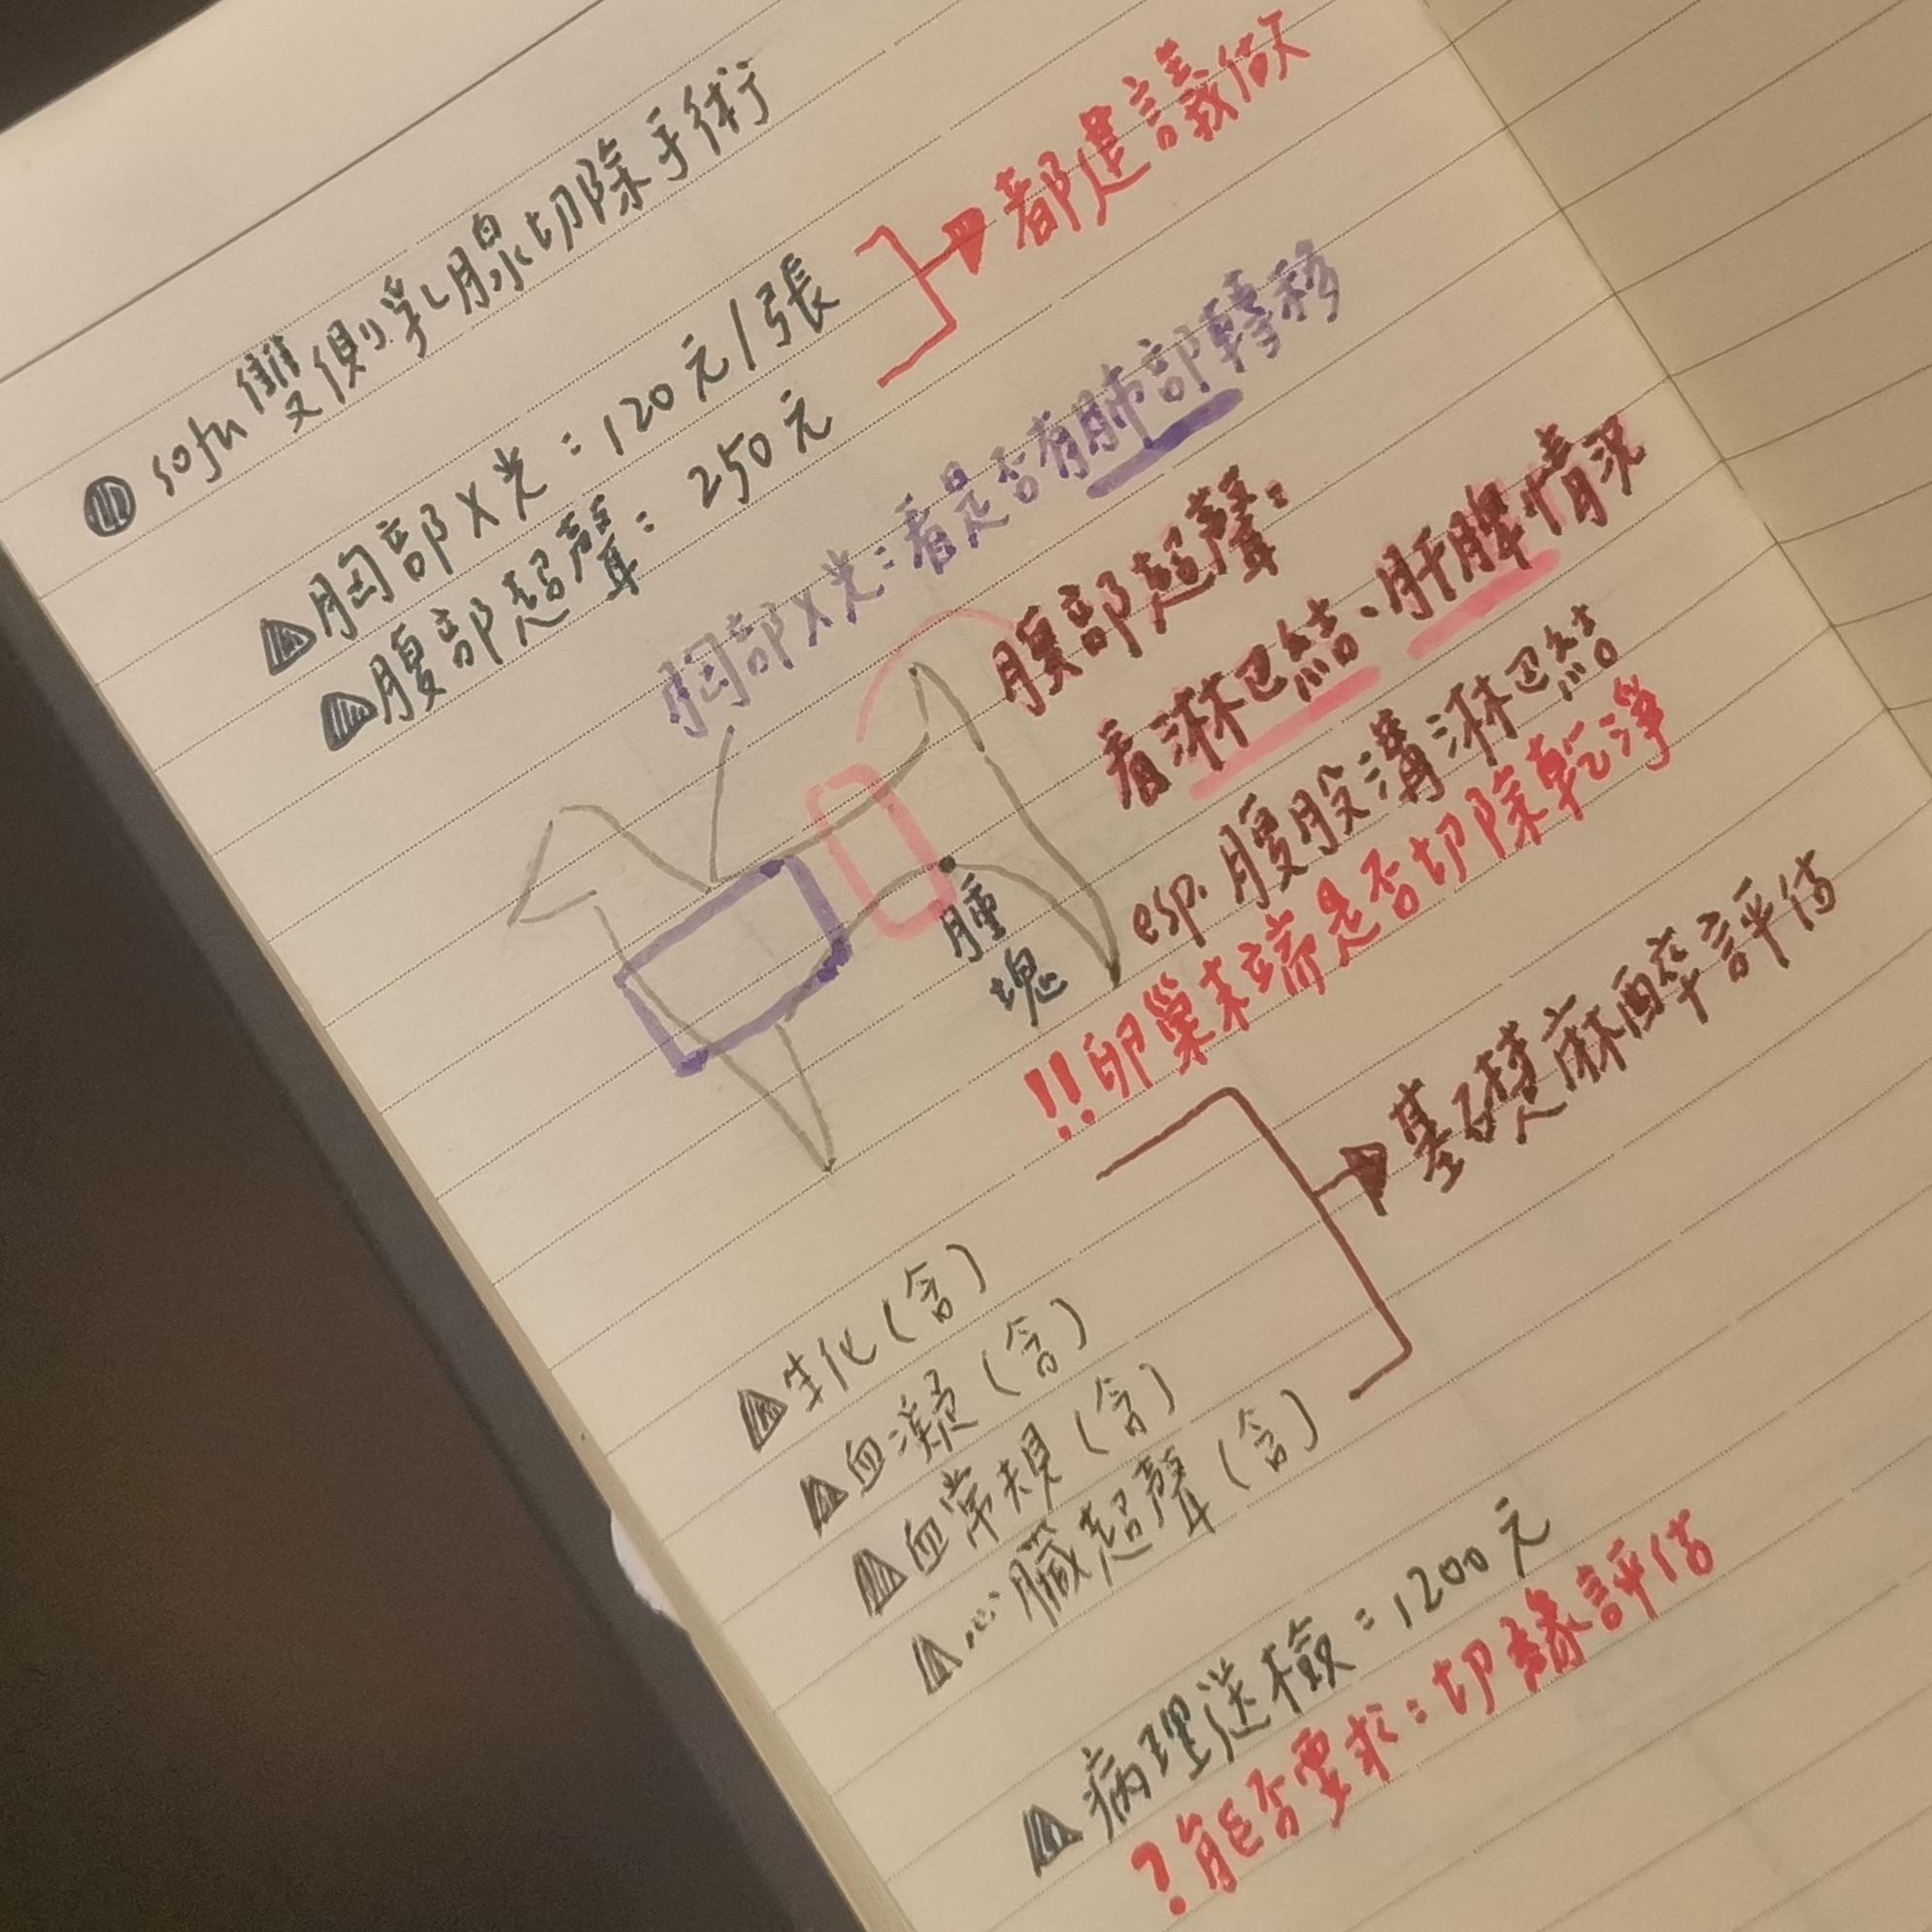 sofu 雙側乳腺切除手術
胸部X光：120元/張
腹部超聲：250元
都建議做
胸部X光：看是否有肺部轉移
腹部超聲：
看淋巴結、肝脾情況
esp. 腹股溝淋巴結
!! 卵巢末端是否切除乾淨
腫
塊
生化（含）
血凝（含）
血常規（含）
心臟超聲（含）
基礎麻醉評估
病理送檢：1200元
? 能否要求：切緣評估